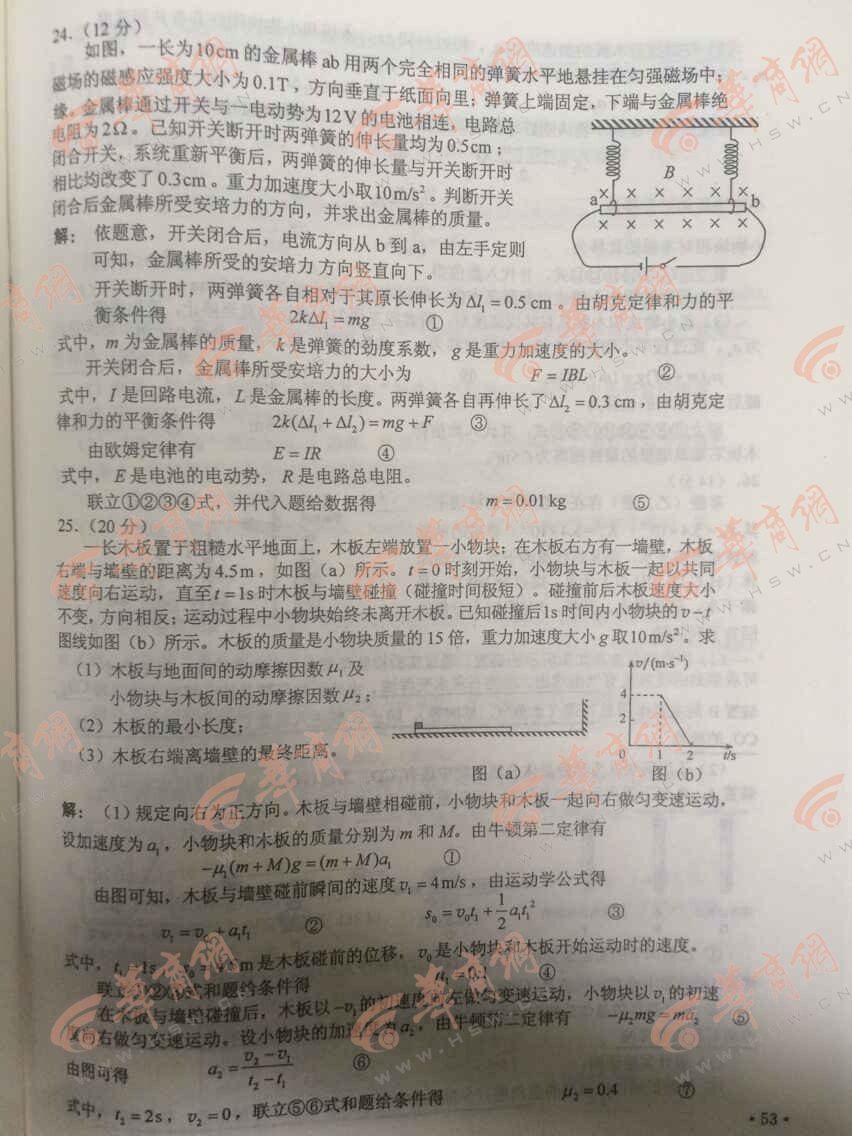 24.（12分）
如图，一长为10cm的金属棒ab用两个完全相同的弹簧水平地悬挂在匀强磁场中；
磁场的磁感应强度大小为0.1T，方向垂直于纸面向里；弹簧上端固定，下端与金属棒绝
缘。金属棒通过开关与一电动势为12V的电池相连，电路总
电阻为2Ω。已知开关断开时两弹簧的伸长量均为0.5cm；
闭合开关，系统重新平衡后，两弹簧的伸长量与开关断开时
相比均改变了0.3cm。重力加速度大小取10m/s²。判断开关
闭合后金属棒所受安培力的方向，并求出金属棒的质量。
B
a
b
解：依题意，开关闭合后，电流方向从b到a，由左手定则
可知，金属棒所受的安培力方向竖直向下。
开关断开时，两弹簧各自相对于其原长伸长为Δl₁=0.5 cm。由胡克定律和力的平
衡条件得 2kΔl₁=mg ①
式中，m为金属棒的质量，k是弹簧的劲度系数，g是重力加速度的大小。
开关闭合后，金属棒所受安培力的大小为 F=IBL ②
式中，I是回路电流，L是金属棒的长度。两弹簧各自再伸长了Δl₂=0.3 cm，由胡克定
律和力的平衡条件得 2k(Δl₁+Δl₂)=mg+F ③
由欧姆定律有 E=IR ④
式中，E是电池的电动势，R是电路总电阻。
联立①②③④式，并代入题给数据得 m=0.01kg ⑤
25.（20分）
一长木板置于粗糙水平地面上，木板左端放置一小物块；在木板右方有一墙壁，木板
右端与墙壁的距离为4.5m，如图（a）所示。t=0时刻开始，小物块与木板一起以共同
速度向右运动，直至t=1s时木板与墙壁碰撞（碰撞时间极短）。碰撞前后木板速度大小
不变，方向相反；运动过程中小物块始终未离开木板。已知碰撞后1s时间内小物块的v-t
图线如图（b）所示。木板的质量是小物块质量的15倍，重力加速度大小g取10m/s²。求
（1）木板与地面间的动摩擦因数μ₁及
小物块与木板间的动摩擦因数μ₂；
（2）木板的最小长度；
（3）木板右端离墙壁的最终距离。
图（a）
v/(m·s⁻¹)
4
2
0 1 2 t/s
图（b）
解：（1）规定向右为正方向。木板与墙壁相碰前，小物块和木板一起向右做匀变速运动，
设加速度为a₁，小物块和木板的质量分别为m和M。由牛顿第二定律有
-μ₁(m+M)g=(m+M)a₁ ①
由图可知，木板与墙壁碰前瞬间的速度v₁=4m/s，由运动学公式得
v₁=v₀+a₁t₁ ② s₀=v₀t₁+½a₁t₁² ③
式中，t₁=1s，是木板碰前的位移，v₀是小物块和木板开始运动时的速度。
联立①②③式和题给条件得 μ₁=0.1 ④
在木板与墙壁碰撞后，木板以-v₁的初速度向左做匀变速运动，小物块以v₁的初速
度向右做匀变速运动。设小物块的加速度为a₂，由牛顿第二定律有 -μ₂mg=ma₂ ⑤
由图可得 a₂=(v₂-v₁)/(t₂-t₁) ⑥
式中，t₂=2s，v₂=0，联立⑤⑥式和题给条件得 μ₂=0.4 ⑦
·53·
华商网
WWW.HSW.CN